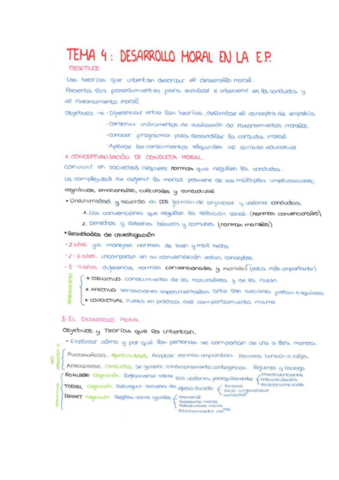 TEMA 4: DESARROLLO MORAL EN LA E.P.
OBJETIVOS
Las teorías que intentan describir el desarrollo moral.
Presenta los procedimientos para evaluar e intervenir en la conducta y
el razonamiento moral.
Objetivos → · Diferenciar entre las teorías, delimitar el concepto de empatía
· Construir instrumentos de evaluación de razonamientos morales.
· Conocer programas para desarrollar la conducta moral.
· Aplicar los conocimientos adquiridos al ámbito educativo
1. CONCEPTUALIZACIÓN DE CONDUCTA MORAL.
Convivir en sociedad requiere normas que regulen la conducta.
La complejidad de definir la moral proviene de sus múltiples implicaciones,
cognitivas, emocionales, culturales y conductual
y acuerdo en DOS formas de enjuiciar y valorar conductas.
1. Las convenciones que regulan la relación social (normas convencionales)
2. Derechos y deberes básicos y comunes (normas morales).
* Resultados de investigación
- 2 años ya manejan normas de bien y mal hecho
- 2 - 6 años. incorporan en su conversación estos conceptos.
- 3 - 4 años diferencia normas convencionales y morales (estas más importante)
* COGNITIVO: conocimiento de la naturaleza, y de la razón
* AFECTIVO: sensaciones experimentadas ante las acciones justas o injustas
* CONDUCTUAL: puesta en práctica del comportamiento mismo
2. EL DESARROLLO MORAL.
Objetivos y Teorías que lo intentan.
· Explicar cómo y por qué las personas se comportan de una u otra manera.
PSICOANÁLISIS. Aceptar normas impuestas.
APRENDIZAJE. Conducta. Se genera condicionamiento,
KOHLBERG cognición. Reflexionar sobre los valores,
TURIEL cognición. Distinguir acciones de
PIAGET cognición. Reglas como iguales